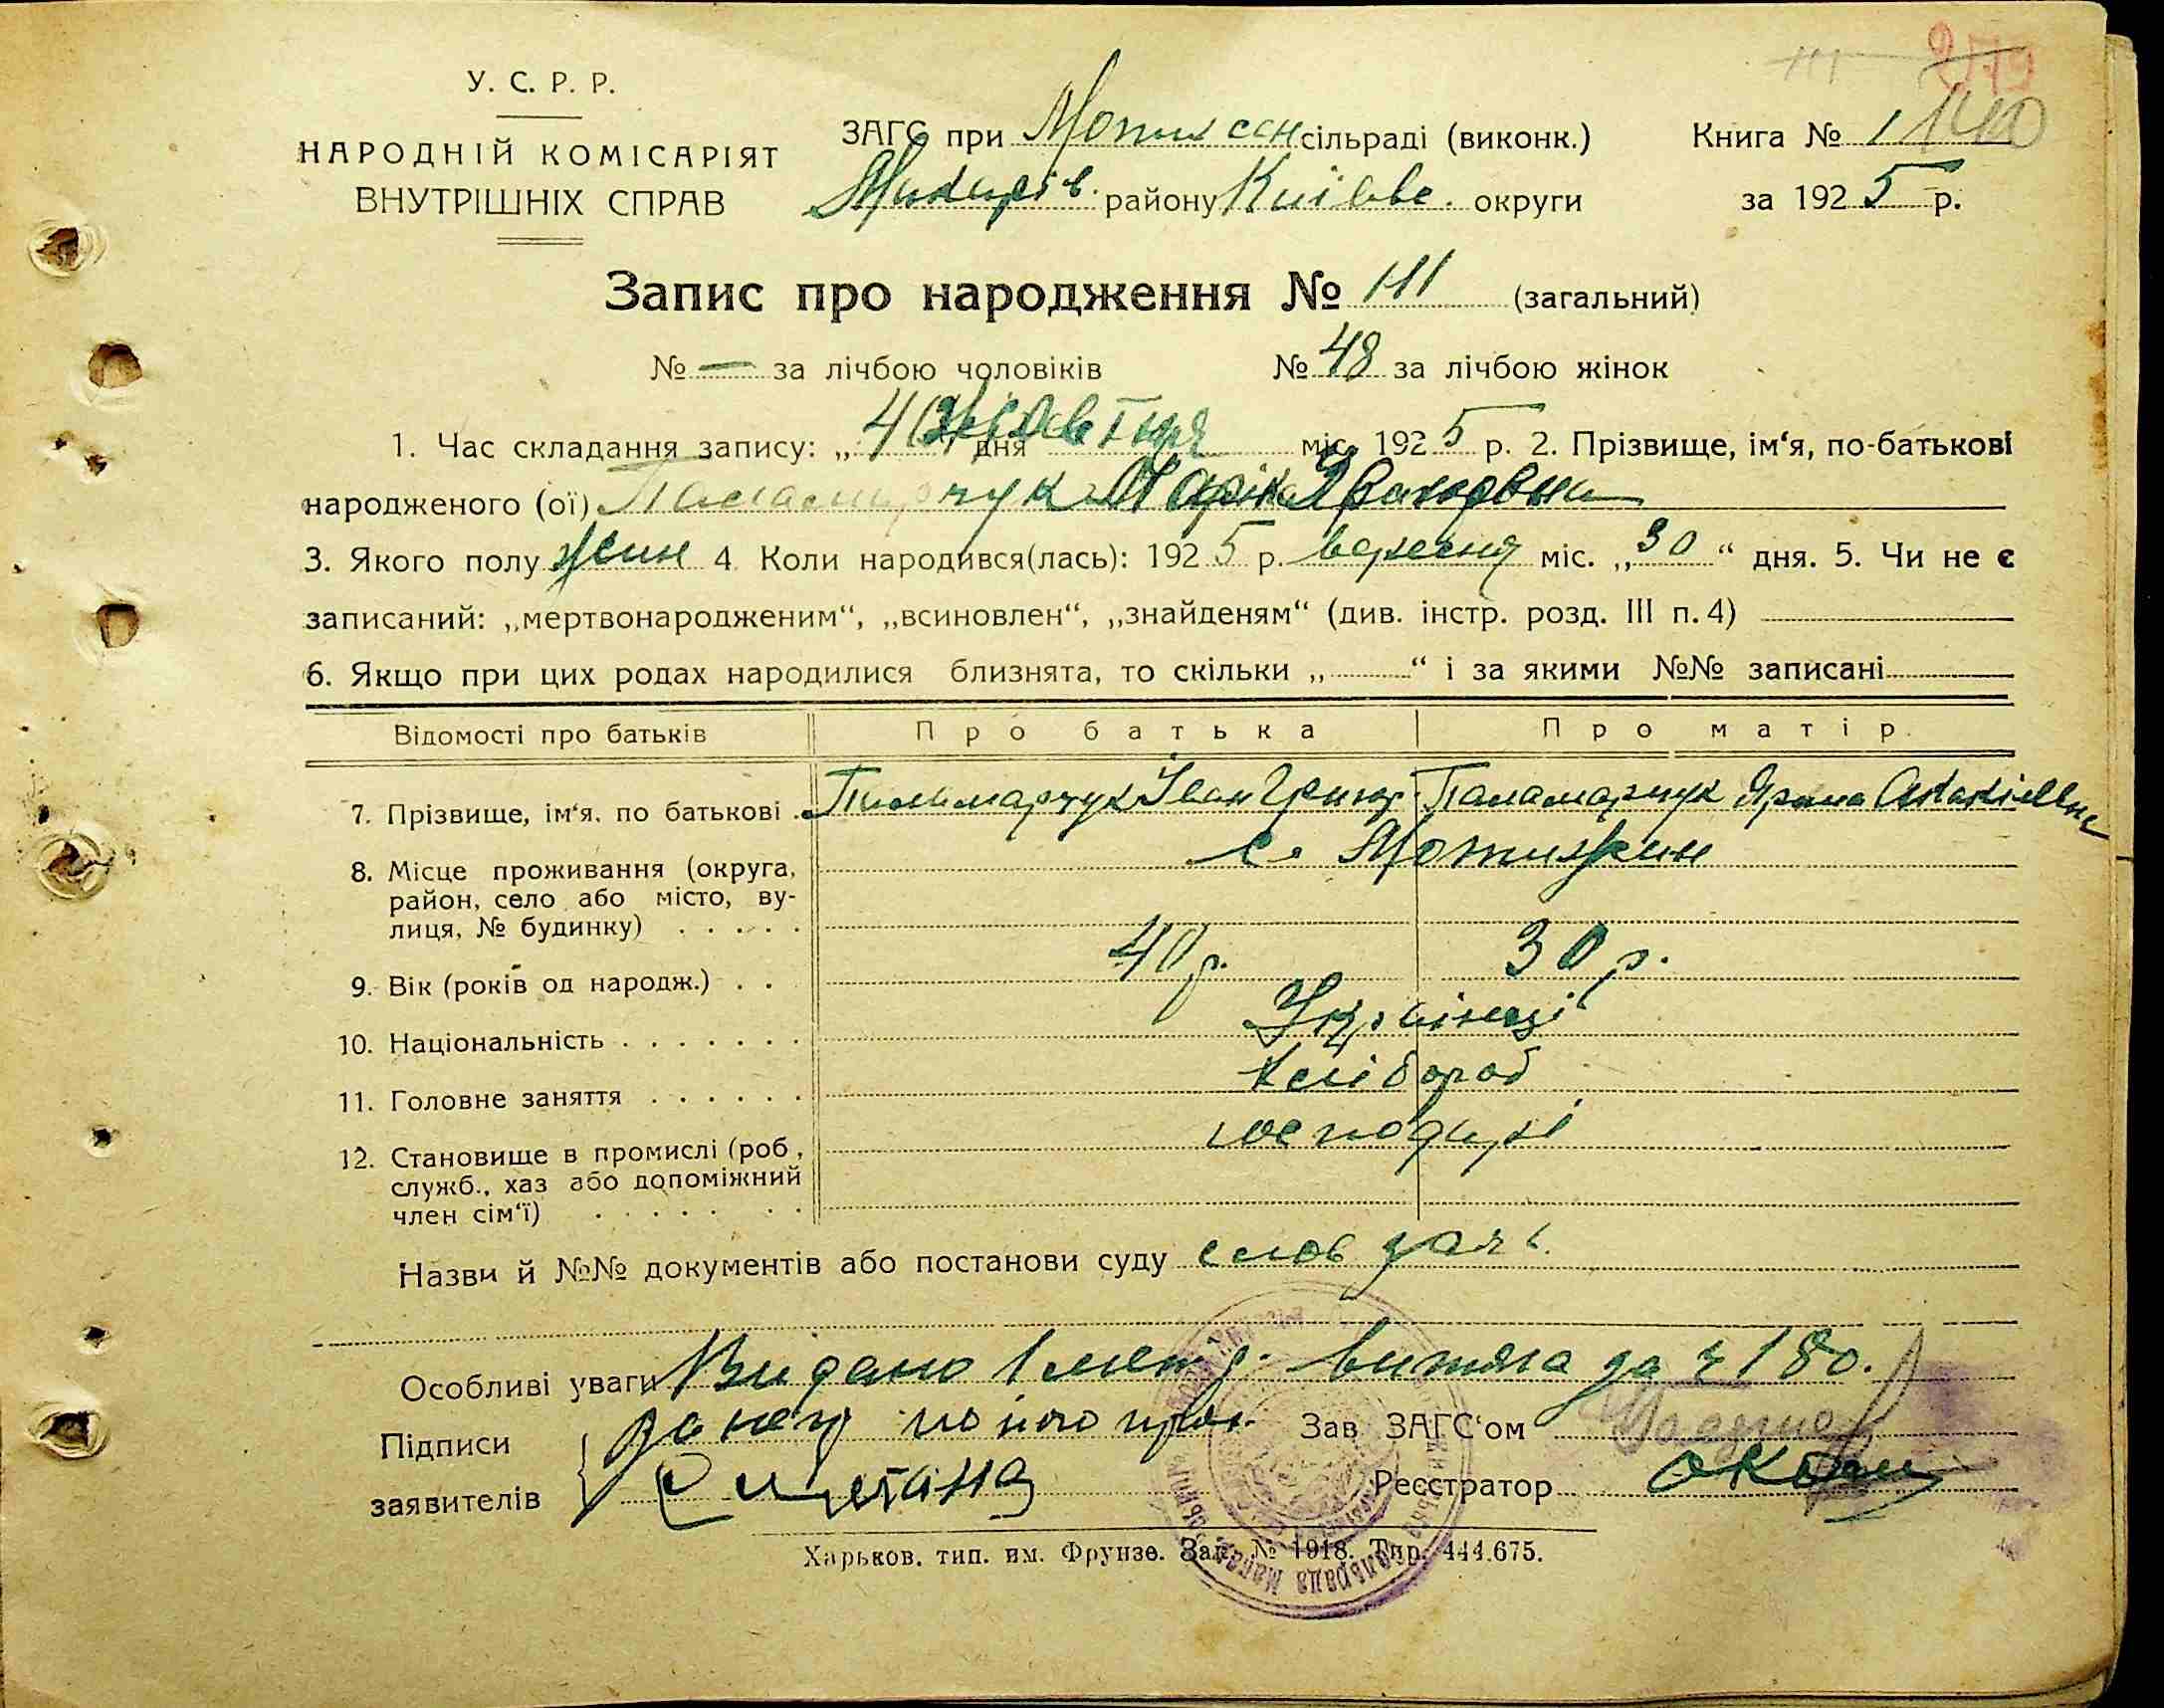 279
У. С. Р. Р.
НАРОДНІЙ КОМІСАРІЯТ
ВНУТРІШНІХ СПРАВ
ЗАГС при Мотижен сільраді (виконк.)
Макарів. району Київськ. округи
Книга № 1 140
за 1925 р.
Запис про народження № 111 (загальний)
№ — за лічбою чоловіків № 48 за лічбою жінок
1. Час складання запису: „4“ дня Жовтня міс. 1925 р. 2. Прізвище, ім‘я, по-батькові
народженого (ої) Паламарчук Марія Івановна
3. Якого полу жін 4 Коли народився(лась): 1925 р. вересня міс. „30“ дня. 5. Чи не є
записаний: „мертвонародженим“, „всиновлен“, „знайденям“ (див. інстр. розд. III п. 4)
6. Якщо при цих родах народилися близнята, то скільки „ “ і за якими №№ записані
Відомості про батьків Про батька Про матір.
7. Прізвище, ім‘я, по батькові Паламарчук Іван Григор. Паламарчук Ярина
8. Місце проживання (округа, с. Мотижин
район, село або місто, ву-
лиця, № будинку)
9. Вік (років од народж.) 40 р. 30 р.
10. Національність Українці
11. Головне заняття Хлібороб
12. Становище в промислі (роб, господарі
служб., хаз або допоміжний
член сім‘ї)
Назви й №№ документів або постанови суду слов заяв.
Особливі уваги Видано 1 метр. витяга за ч 180.
Підписи
заявителів
Зав ЗАГС‘ом
Реєстратор
Харьков. тип. им. Фрунзе. Зак. № 1918. Тир. 444.675.